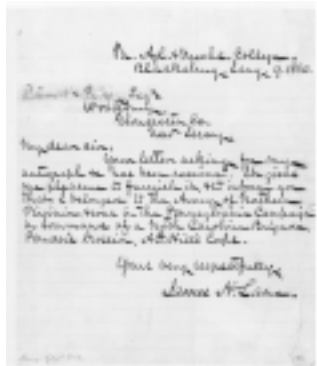 Va. Agl. & Mechl. College,
Blacksburg, Aug. 9, 1880.
Esq.
Woodbury,
Gloucester Co.
New Jersey.
My dear sir,
Your letter asking for my
autograph has been received. It gives
me pleasure to furnish it, and inform you
that I belonged to the Army of Northern
Virginia & was in the Pennsylvania Campaign
in command of a North Carolina Brigade,
Division, A. P. Hill's Corps.
Yours very respectfully,
James H. Lane.